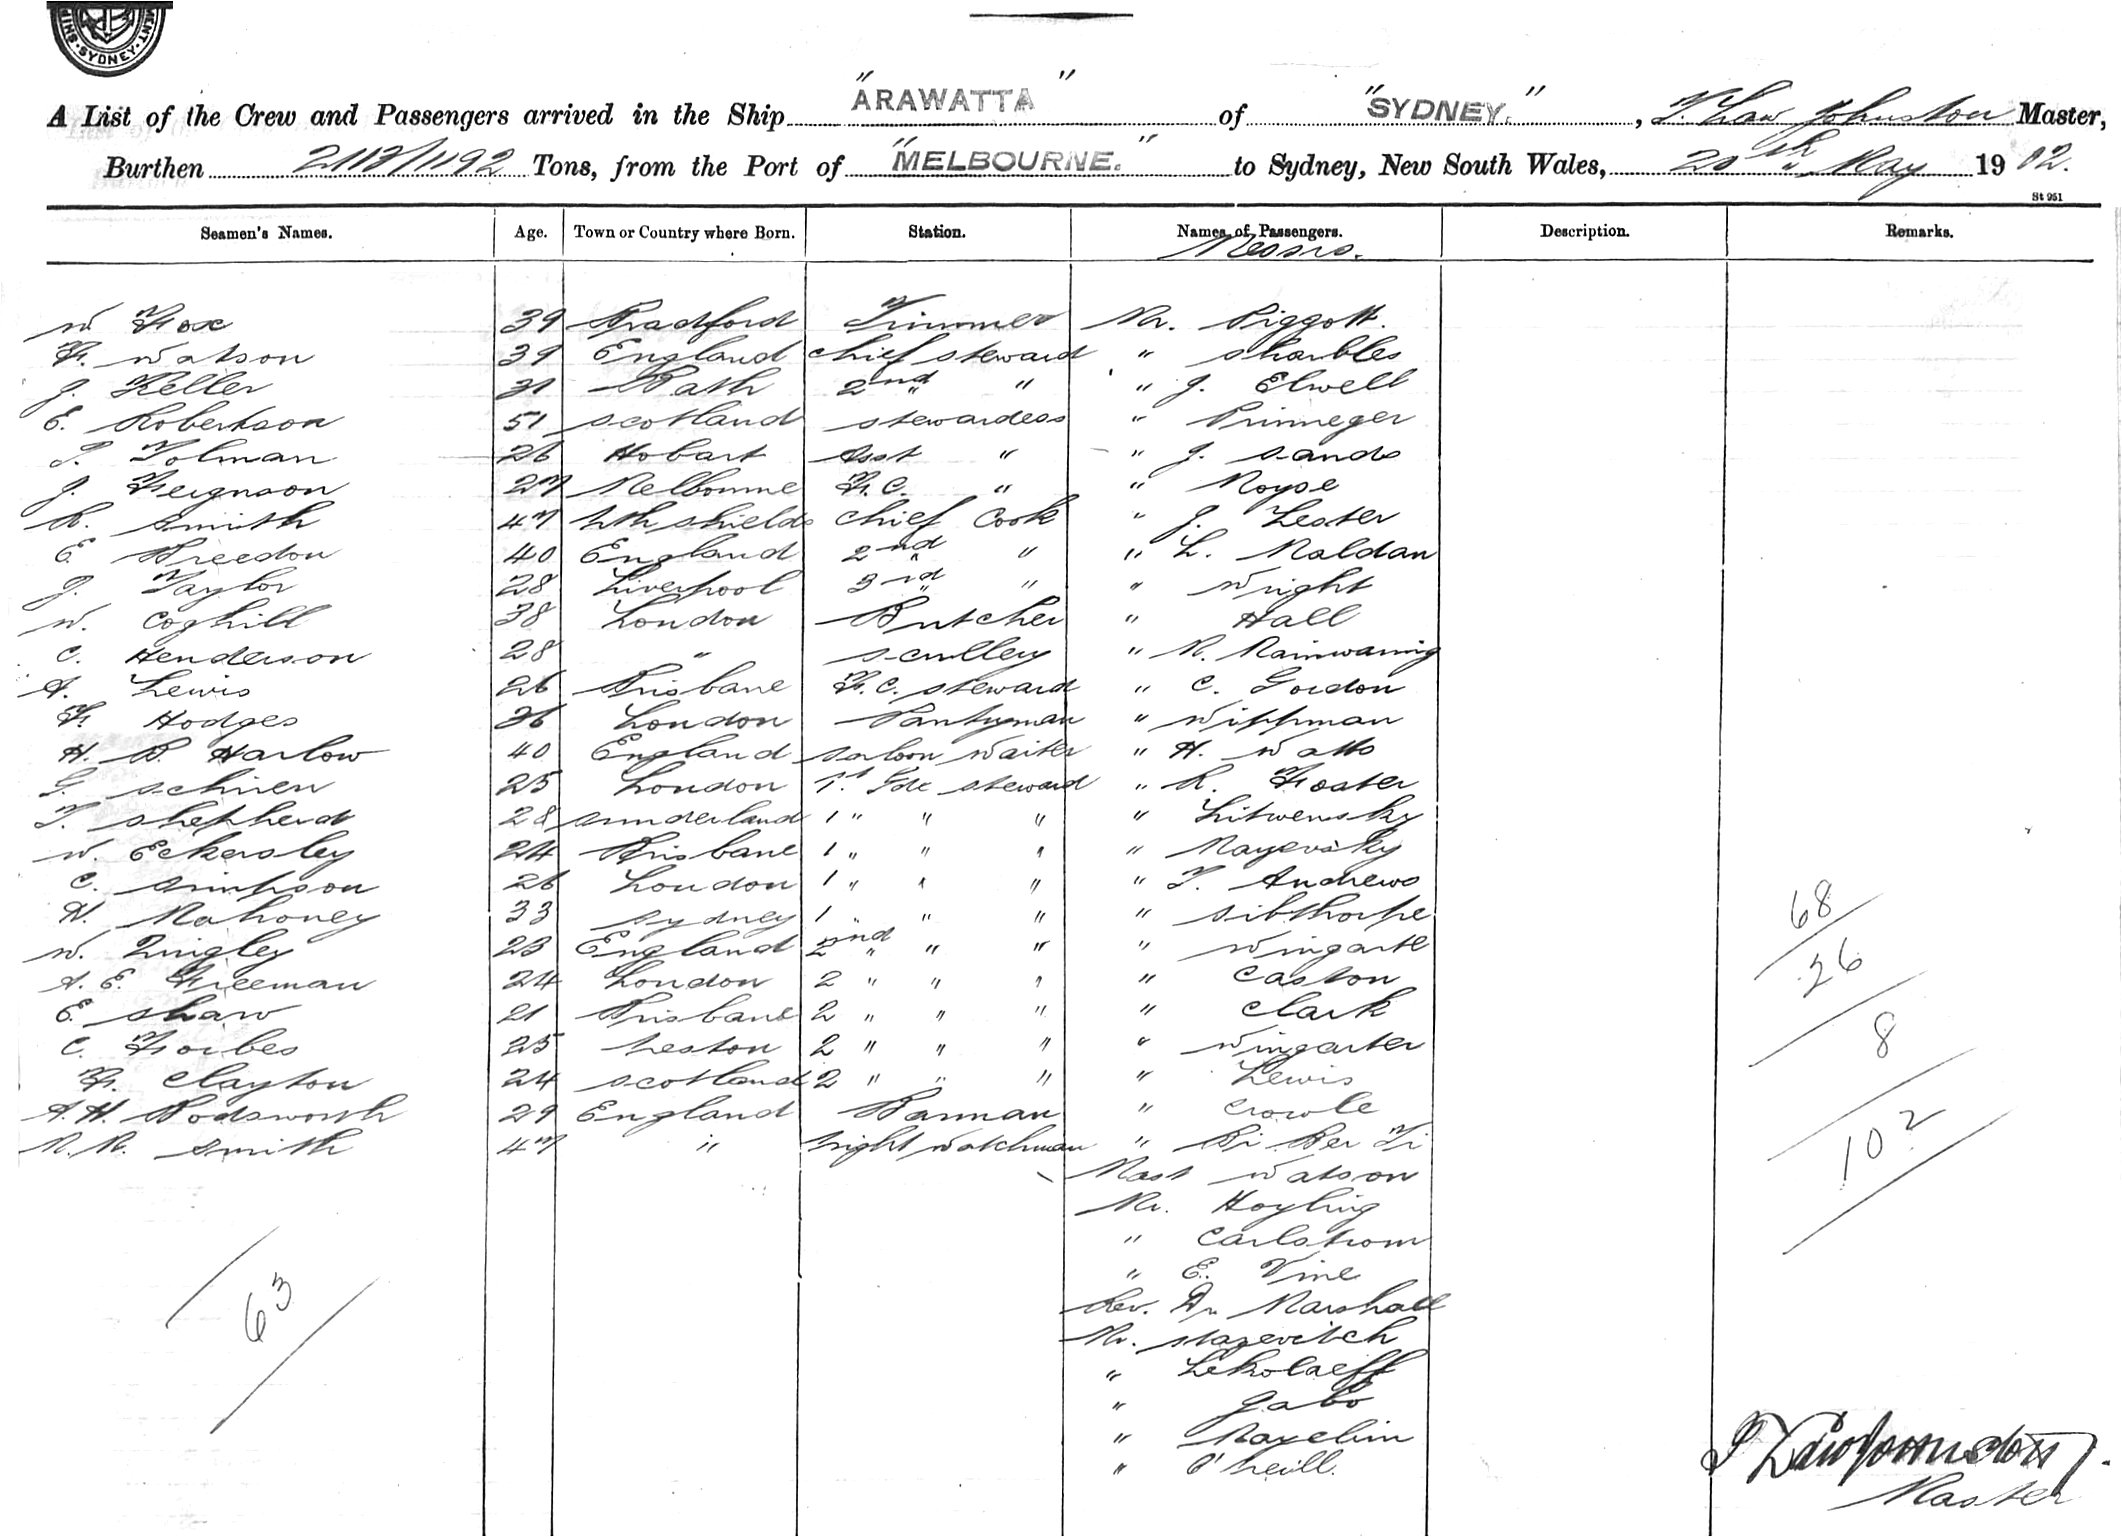 SYDNEY
A List of the Crew and Passengers arrived in the Ship "ARAWATTA" of "SYDNEY.", T. Law Johnston Master,
Burthen Tons, from the Port of "MELBOURNE." to Sydney, New South Wales, 20th May 1902.
St 951
Seamen's Names. Age. Town or Country where Born. Station. Names of Passengers. Description. Remarks.
Messrs.
W Fox 39 Bradford Trimmer Mr. Piggott.
F. Watson 39 England Chief Steward " Sharbles
J. Keller 31 Bath 2nd " " J. Elwell
E. Robertson 51 Scotland Stewardess " Prinneger
T. Tolman 26 Hobart Asst " " J. Sands
J. Ferguson 27 Melbourne F.C. " " Moyse
R. Smith 47 Nth Shields Chief Cook " J. Lester
E. Breedon 40 England 2nd " " L. Maldan
J. Taylor 28 Liverpool 3rd " " Wright
W. Coghill 38 London Butcher " Hall
C. Henderson 28 " Scullery " R. Mainwaring
A. Lewis 26 Brisbane F.C. Steward " C. Gordon
F. Hodges 36 London Pantryman " Wippman
H. B. Harlow 40 England Saloon Waiter " H. Watts
G. Schuen 25 London 1st Gde Steward " R. Foster
T. Shepherd 28 Sunderland 1 " " " " Litwensky
W. Eckersley 24 Brisbane 1 " " " " Mayevsky
C. Simpson 26 London 1 " " " " T. Andrews
H. Mahoney 33 Sydney 1 " " " " Sibthorpe
W. Quigley 23 England 2nd " " " Wingarte
A. E. Freeman 24 London 2 " " " " Caston
E. Shaw 21 Brisbane 2 " " " " Clark
C. Forbes 25 2 " " " " Wingarter
F. Clayton 24 Scotland 2 " " " " Lewis
A. H. Bodsworth 29 England Barman " Crowle
M. R. Smith 47 " Night Watchman " Bi Ber Ti
Mast Watson
Mr. Hoyling
" Carlstrom
" E. Vine
Rev. Dr Marshall
Mr. Stazevitch
" Lekolaeff
" Gabo
" Mayelim
" O'Neill.
63
68
26
8
102
T Law Johnston.
Master